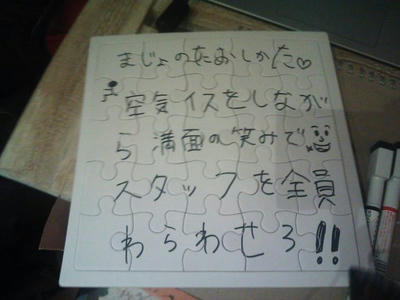 まじょのたおしかた♡
空気イスをしなが
ら満面の笑みで
スタッフを全員
わらわせろ!!